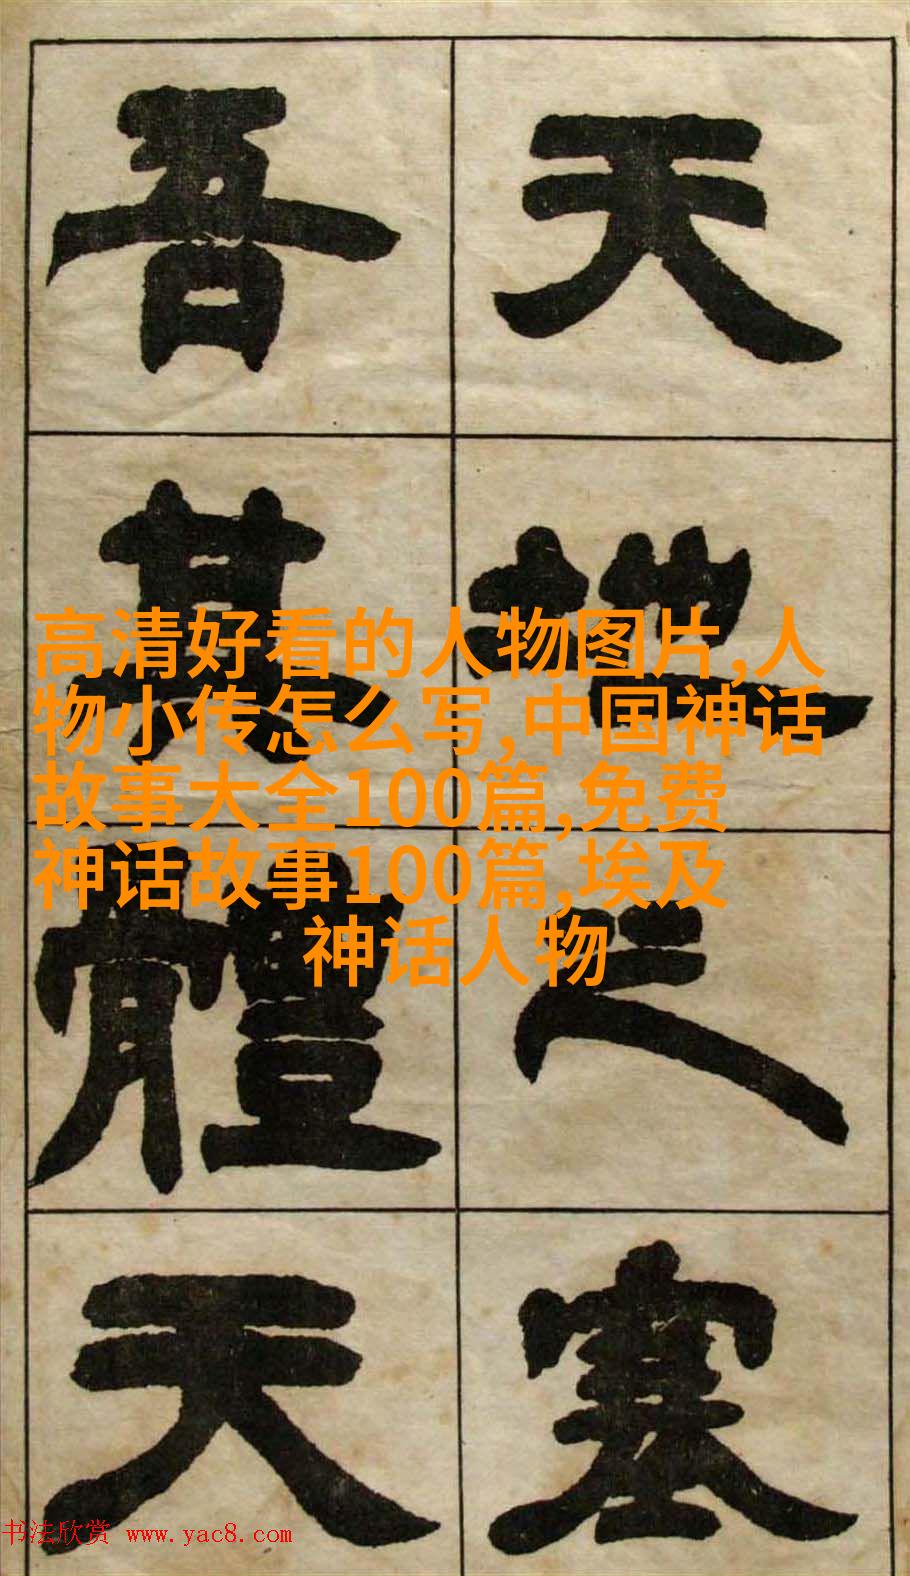 天地之塞
吾其體天
高清好看的人物图片,人
物小传怎么写,中国神话
故事大全100篇,免费
神话故事100篇,埃及
神话人物
书法欣赏 www.yac8.com